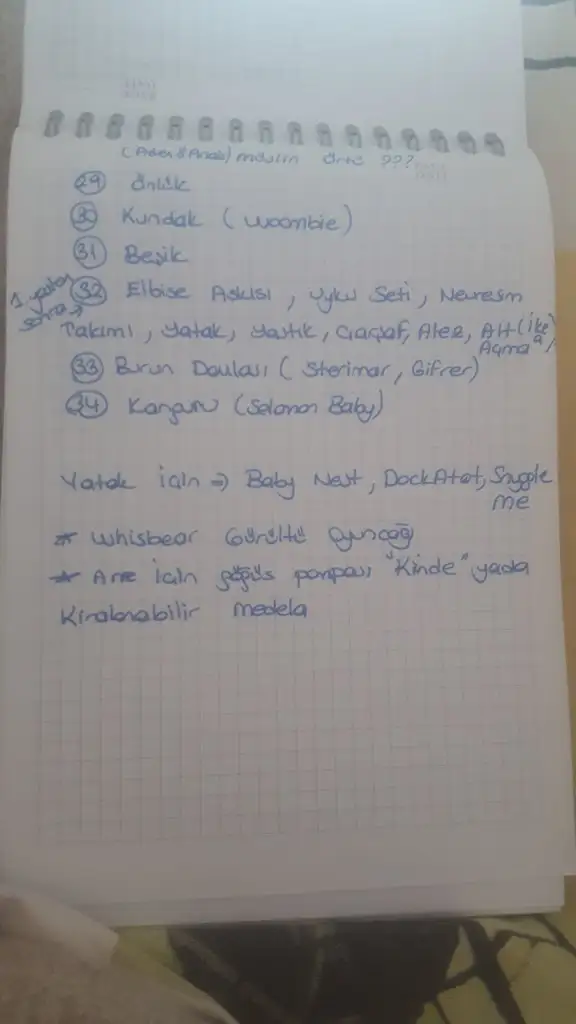 (Aden&Anais) müslin örtü ???
29 Önlük
30 Kundak (woombie)
31 Beşik
1 yaştan sonra → 32 Elbise Askısı, uyku Seti, Nevresim
Takımı, yatak, yastık, Çarşaf, Alez, Alt (ikea)
Açma
33 Burun Damlası (Sterimar, Gifrer)
34 Kanguru (Solomon Baby)
Yatak için → Baby Nest, DockAtot, Snuggle
me
* whisbear Gürültü oyuncağı
* Anne için göğüs pompası "Kinde" yada
Kiralanabilir medela